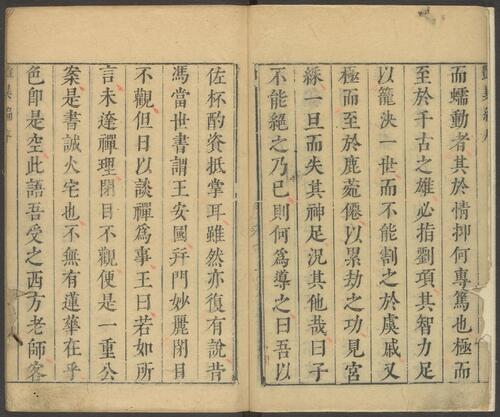 而蠕動者其於情抑何專篤也極而
至於千古之雄必指劉項其智力足
以籠決一世而不能割之於虞戚又
極而至於鹿菀僊以累劫之功見宮
綵一旦而失其神足況其他哉曰子
不能絕之乃已則何爲導之曰吾以
佐杯酌資抵掌耳雖然亦復有說昔
馮當世書謂王安國幷門妙麗閉目
不觀但日以談禪爲事王曰若如所
言未達禪理閉目不觀便是一重公
案是書誠火宅也不無有蓮華在乎
色卽是空此語吾受之西方老師客